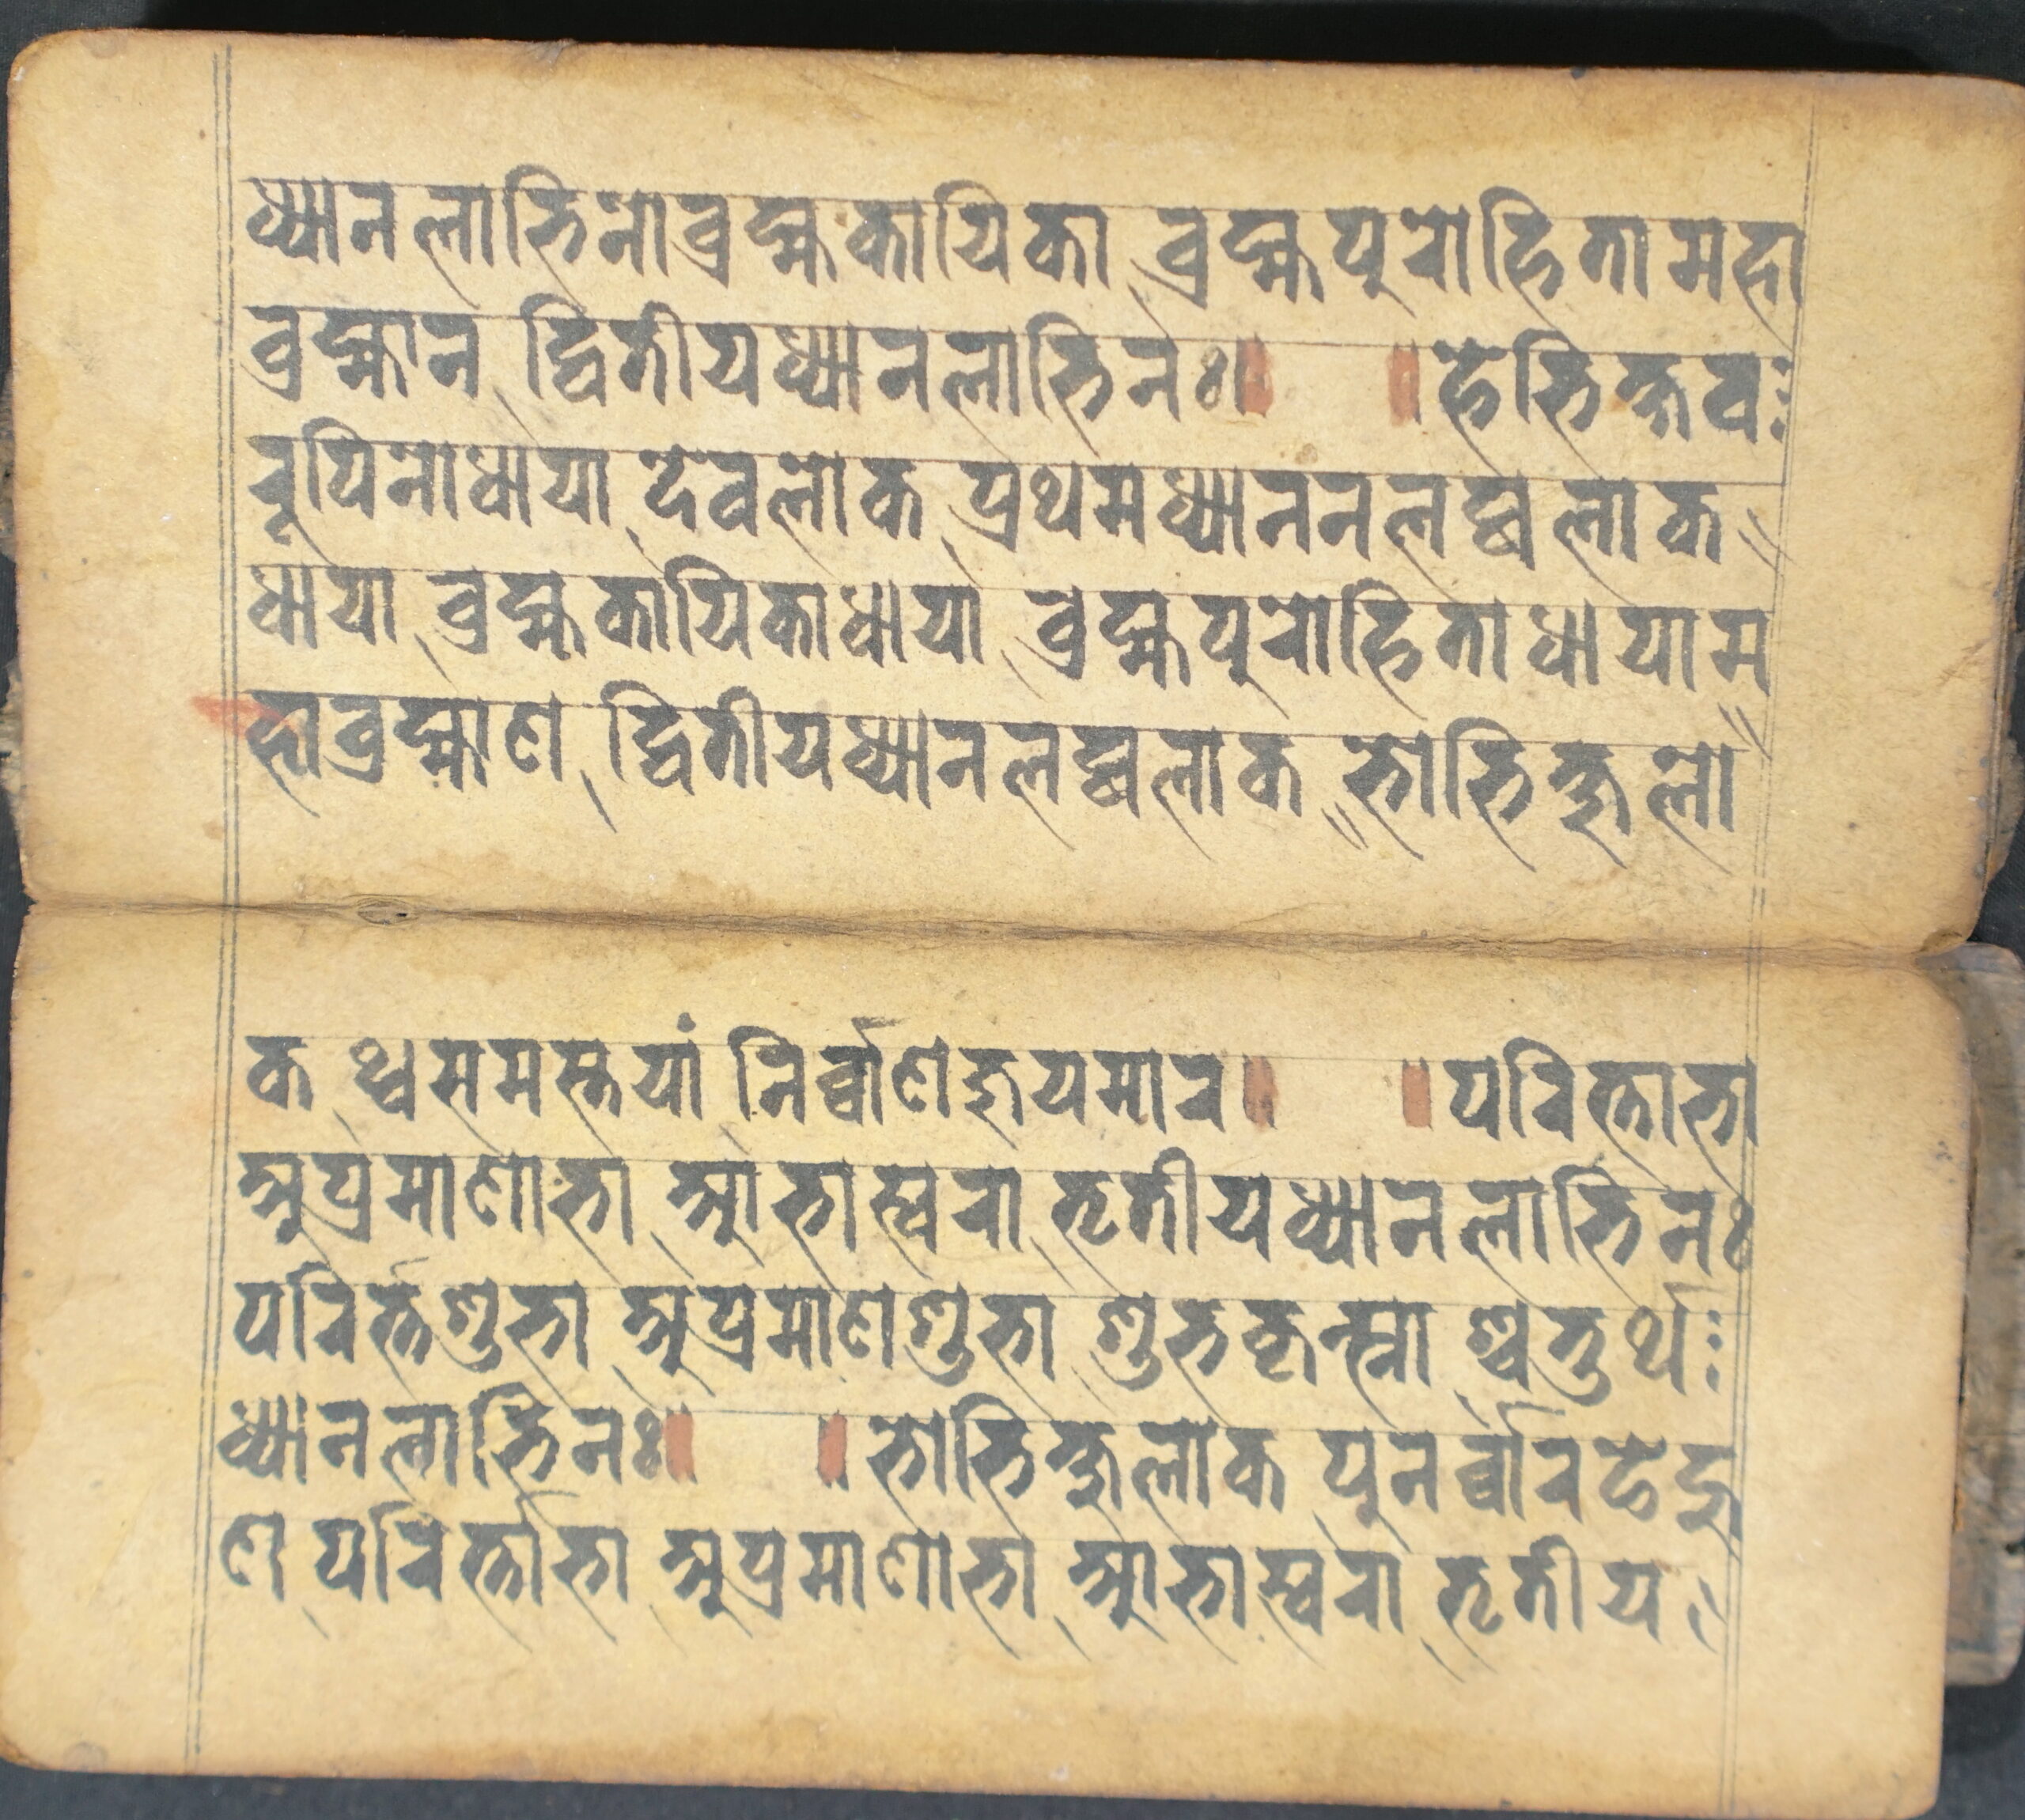 ध्यानलाभिनोब्रह्मकायिका ब्रह्मपुरोहिता महा
ब्रह्मान द्वितीयध्यानलाभिनः॥ ॥हेभिक्षवः
रूपिनोधाया देवलोक प्रथमध्याननलब्धलाक
धाया ब्रह्मकायिकाधाया ब्रह्मपुरोहिताधायाम
हाब्रह्माण द्वितीयध्यानलब्धलाक भोभिक्षुलो
क थ्वसमस्तयां निर्व्वाणजुयमार॥ ॥परित्ताभा
अप्रमाणाभा आभास्वरा तृतीयध्यानलाभिनः
परिर्त्तशुभा अप्रमाणशुभा शुभकृत्स्ना श्चतुर्थः
ध्यानलाभिनः॥ ॥भोभिक्षुलोक पुनर्व्वारछेजु
ण परिर्त्ताभा अप्रमाणाभा आभास्वरा तृतीय